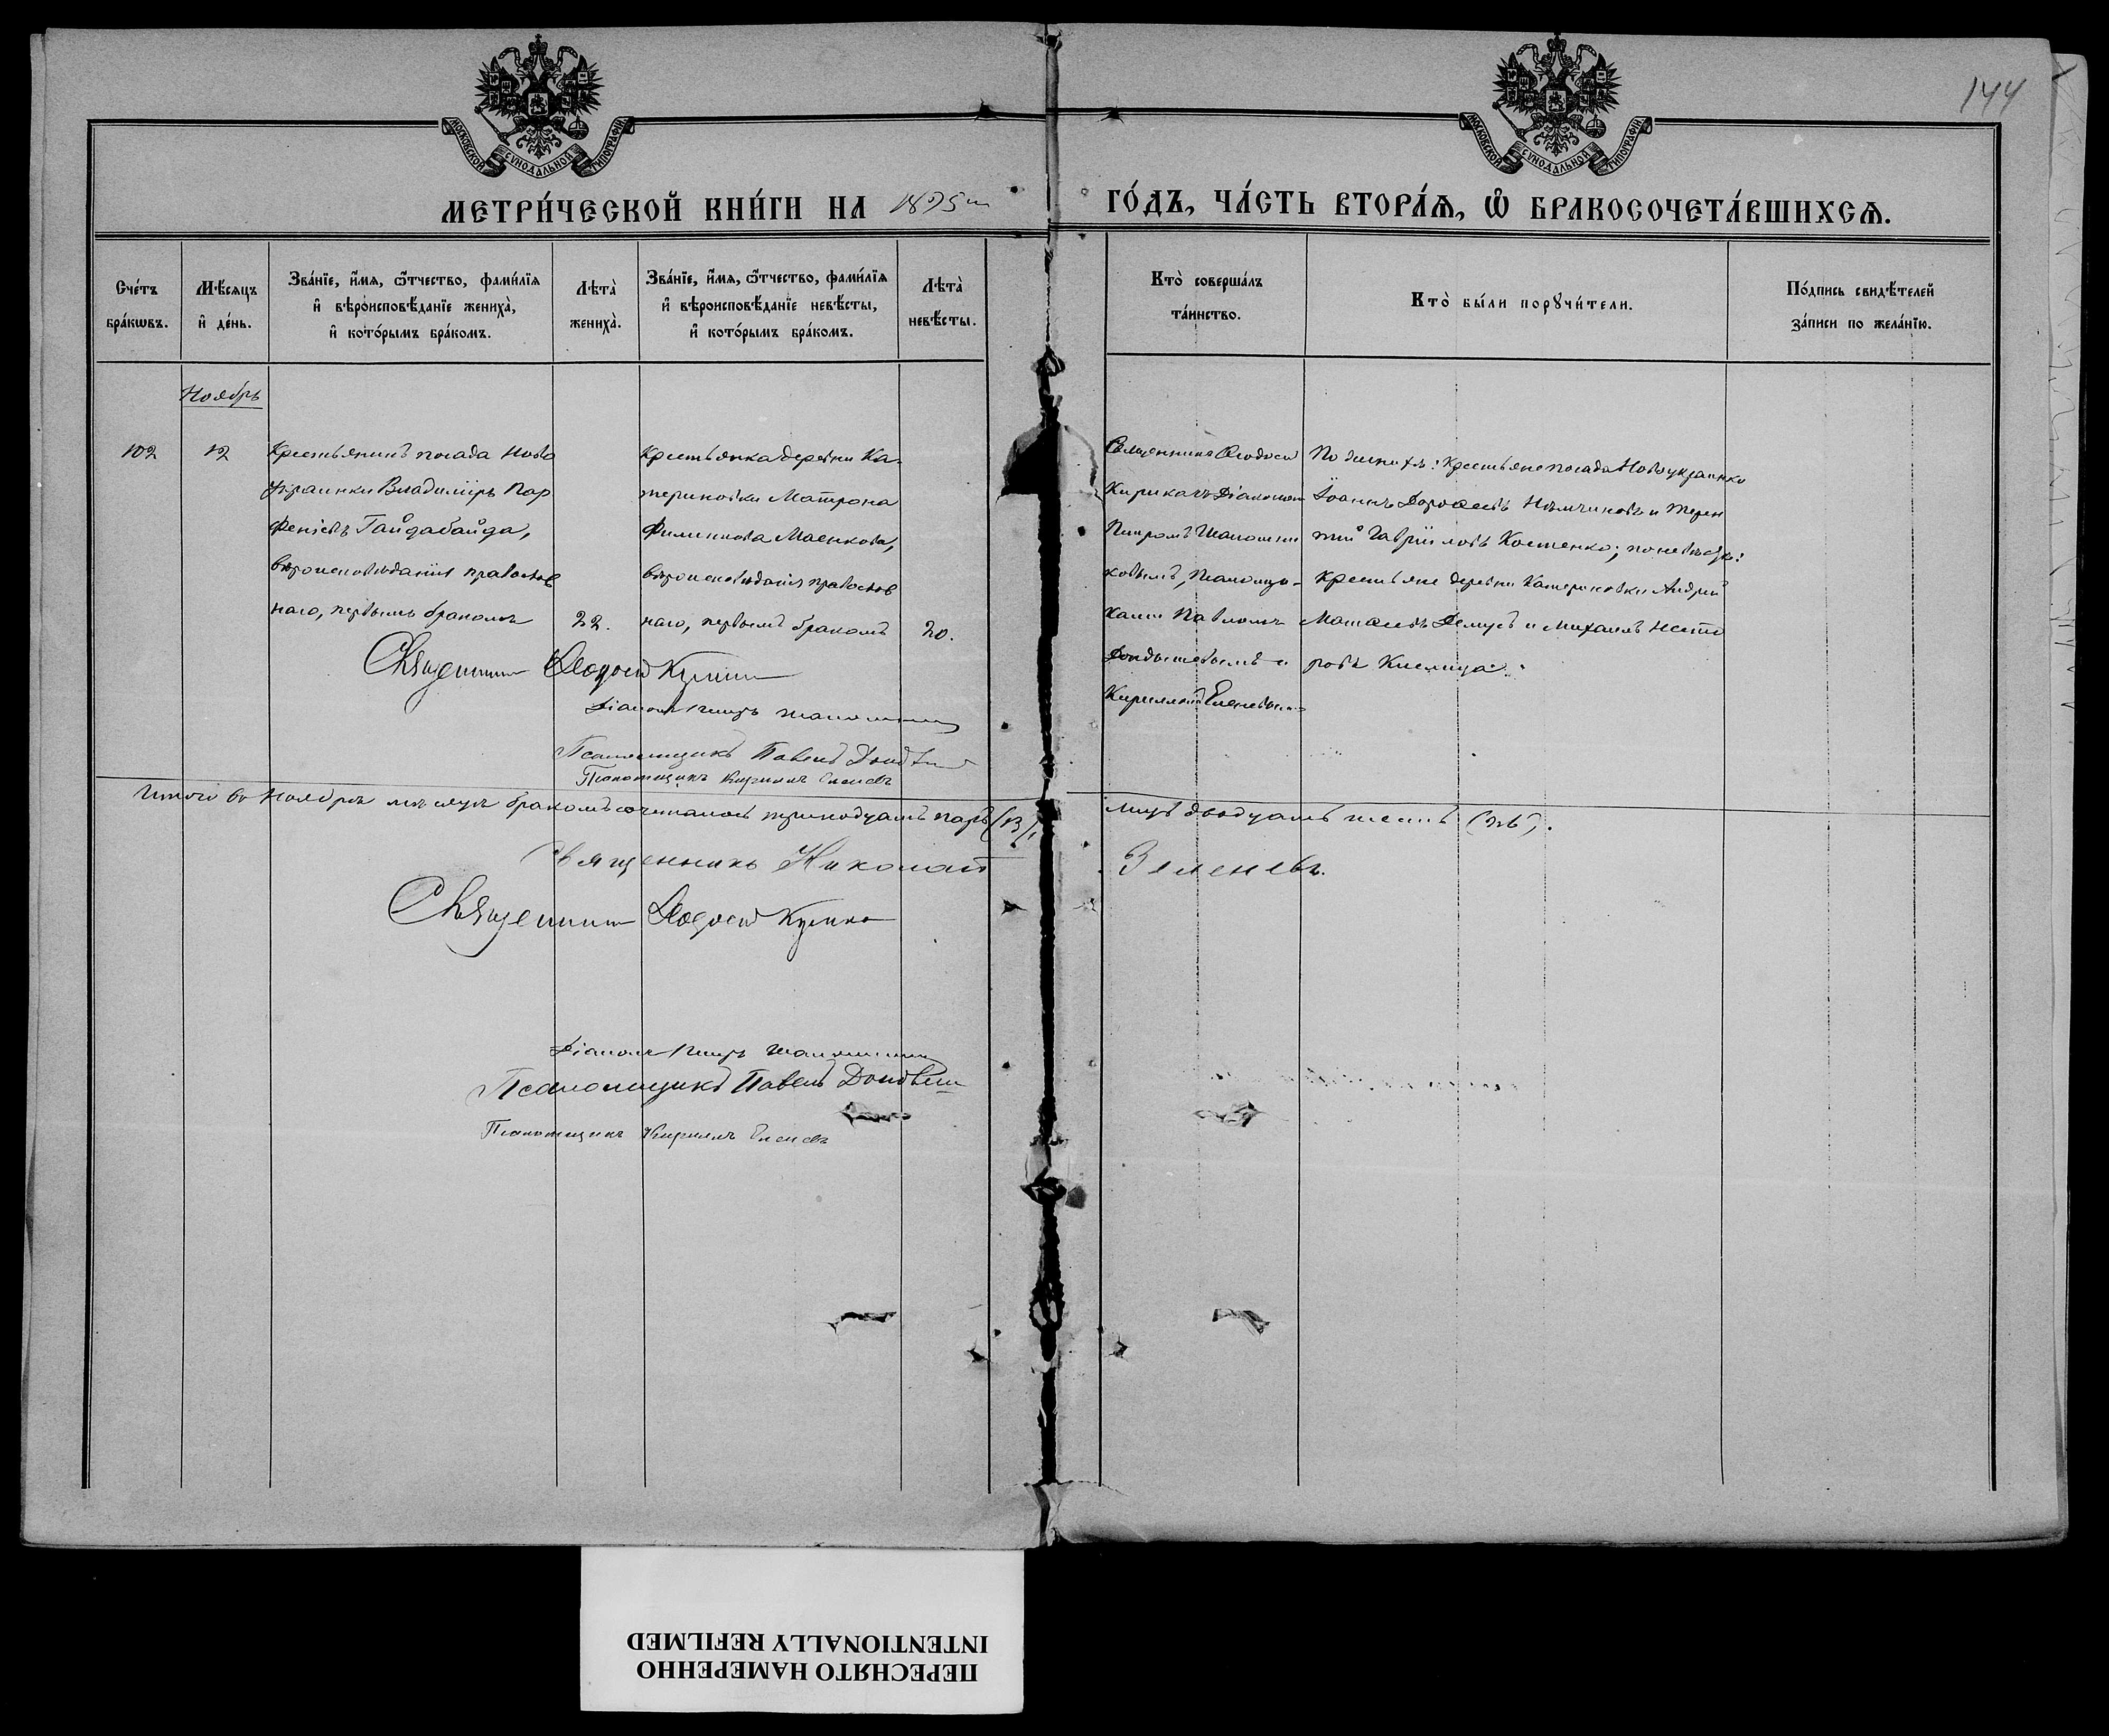 144
МОСКОВСКОЙ СѴНОДАЛЬНОЙ ТИПОГРАФІИ
МОСКОВСКОЙ СѴНОДАЛЬНОЙ ТИПОГРАФІИ
МЕТРИ́ЧЕСКОЙ КНИ́ГИ НА 1895й
ГО́ДЪ, ЧА́СТЬ ВТОРА́Ѧ, Ѡ҆ БРАКОСОЧЕТА́ВШИХСѦ.
Сче́тъ
бра́кѡвъ.
Мѣ́сѧцъ
и҆ де́нь.
Зва́нїе, и҆́мѧ, ѻ҆́тчество, фами́лїѧ
и҆ вѣроисповѣ́данїе жениха̀,
и҆ кото́рымъ бра́комъ.
Лѣта̀
жениха̀.
Зва́нїе, и҆́мѧ, ѻ҆́тчество, фами́лїѧ
и҆ вѣроисповѣ́данїе невѣ́сты,
и҆ кото́рымъ бра́комъ.
Лѣта̀
невѣ́сты.
Кто̀ соверша́лъ
та́инство.
Кто̀ бы́ли порꙋчи́тели.
По́дпись свидѣ́телей
за́писи по жела́нїю.
Ноябрь
102
12
Крестьянинъ посада Ново
украинки Владиміръ Пар
феніевъ Гайдабайда,
вѣроисповѣданія православ
наго, первымъ бракомъ
22.
Крестьянка деревни Ка-
териновки Матрона
Филиппова
вѣроисповѣданія православ
наго, первымъ бракомъ
20.
Священникъ Ѳеодосій
Діакономъ
Петромъ
Псаломщи-
ками Павломъ
и
Кирилломъ Еленевымъ
По женихѣ: крестьяне посада Новоукраинки
Іоаннъ Дороѳеевъ Нѣмчиновъ и Терен
тій Гавріиловъ Костенко; по невѣстѣ:
крестьяне деревни Катериновки Андрей
Матѳеевъ Демусъ и Михаилъ Несто
ровъ Кислица.
Священникъ Ѳеодосій
Діаконъ Петръ
Псаломщикъ Павелъ
Псаломщикъ Кириллъ Еленевъ
Итого въ Ноябрѣ мѣсяцѣ бракомъ сочеталось тринадцать паръ (13),
лицъ двадцать шесть (26).
Священникъ Николай
Зеленевъ.
Священникъ Ѳеодосій
Діаконъ Петръ
Псаломщикъ Павелъ
Псаломщикъ Кириллъ Еленевъ
ПЕРЕСНЯТО НАМЕРЕННО
INTENTIONALLY REFILMED